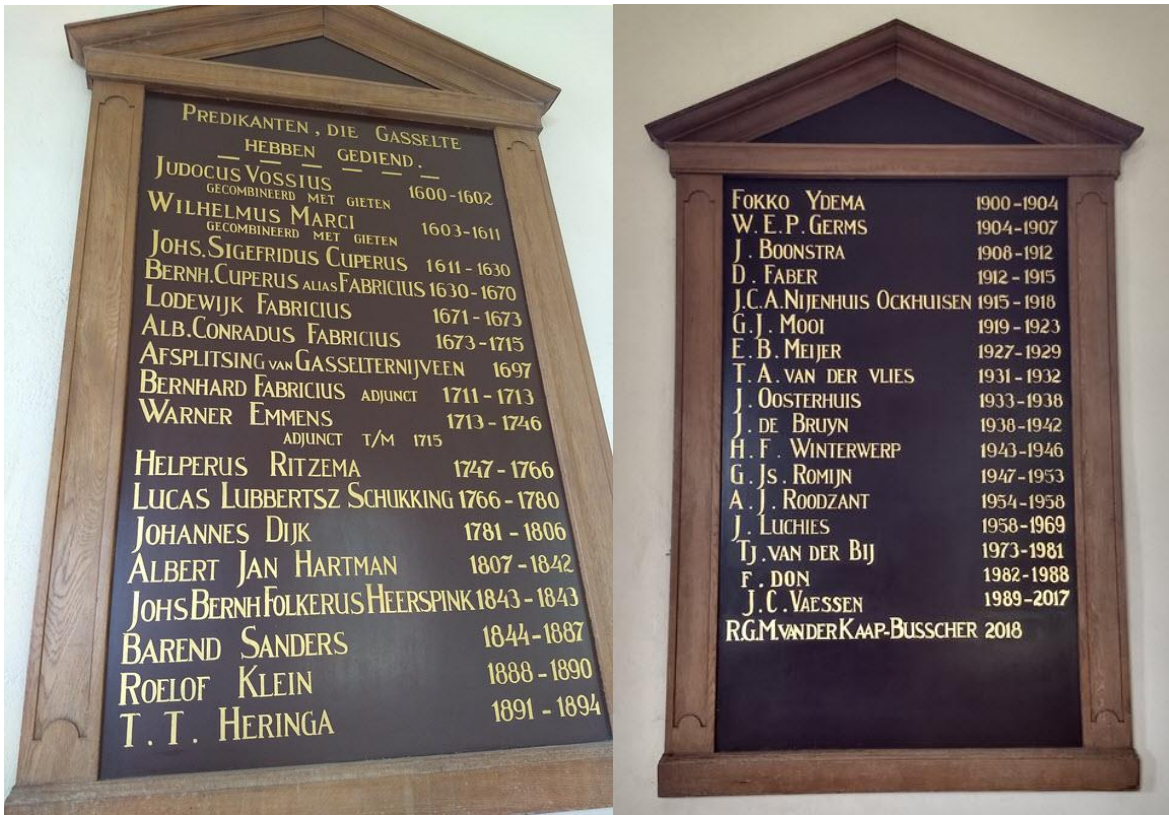 PREDIKANTEN, DIE GASSELTE
HEBBEN GEDIEND.
JUDOCUS VOSSIUS 1600-1602
GECOMBINEERD MET GIETEN
WILHELMUS MARCI 1603-1611
GECOMBINEERD MET GIETEN
JOHS. SIGEFRIDUS CUPERUS 1611-1630
BERNH. CUPERUS ALIAS FABRICIUS 1630-1670
LODEWIJK FABRICIUS 1671-1673
ALB. CONRADUS FABRICIUS 1673-1715
AFSPLITSING VAN GASSELTERNIJVEEN 1697
BERNHARD FABRICIUS ADJUNCT 1711-1713
WARNER EMMENS 1713-1746
ADJUNCT T/M 1715
HELPERUS RITZEMA 1747-1766
LUCAS LUBBERTSZ SCHUKKING 1766-1780
JOHANNES DIJK 1781-1806
ALBERT JAN HARTMAN 1807-1842
JOHS BERNH FOLKERUS HEERSPINK 1843-1843
BAREND SANDERS 1844-1887
ROELOF KLEIN 1888-1890
T. T. HERINGA 1891-1894
FOKKO YDEMA 1900-1904
W. E. P. GERMS 1904-1907
J. BOONSTRA 1908-1912
D. FABER 1912-1915
J.C.A. NIJENHUIS OCKHUISEN 1915-1918
G. J. MOOI 1919-1923
E. B. MEIJER 1927-1929
T. A. VAN DER VLIES 1931-1932
J. OOSTERHUIS 1933-1938
J. DE BRUYN 1938-1942
H. F. WINTERWERP 1943-1946
G. JS. ROMIJN 1947-1953
A. J. ROODZANT 1954-1958
J. LUCHIES 1958-1969
TJ. VAN DER BIJ 1973-1981
F. DON 1982-1988
J. C. VAESSEN 1989-2017
R.G.M. VAN DER KAAP-BUSSCHER 2018